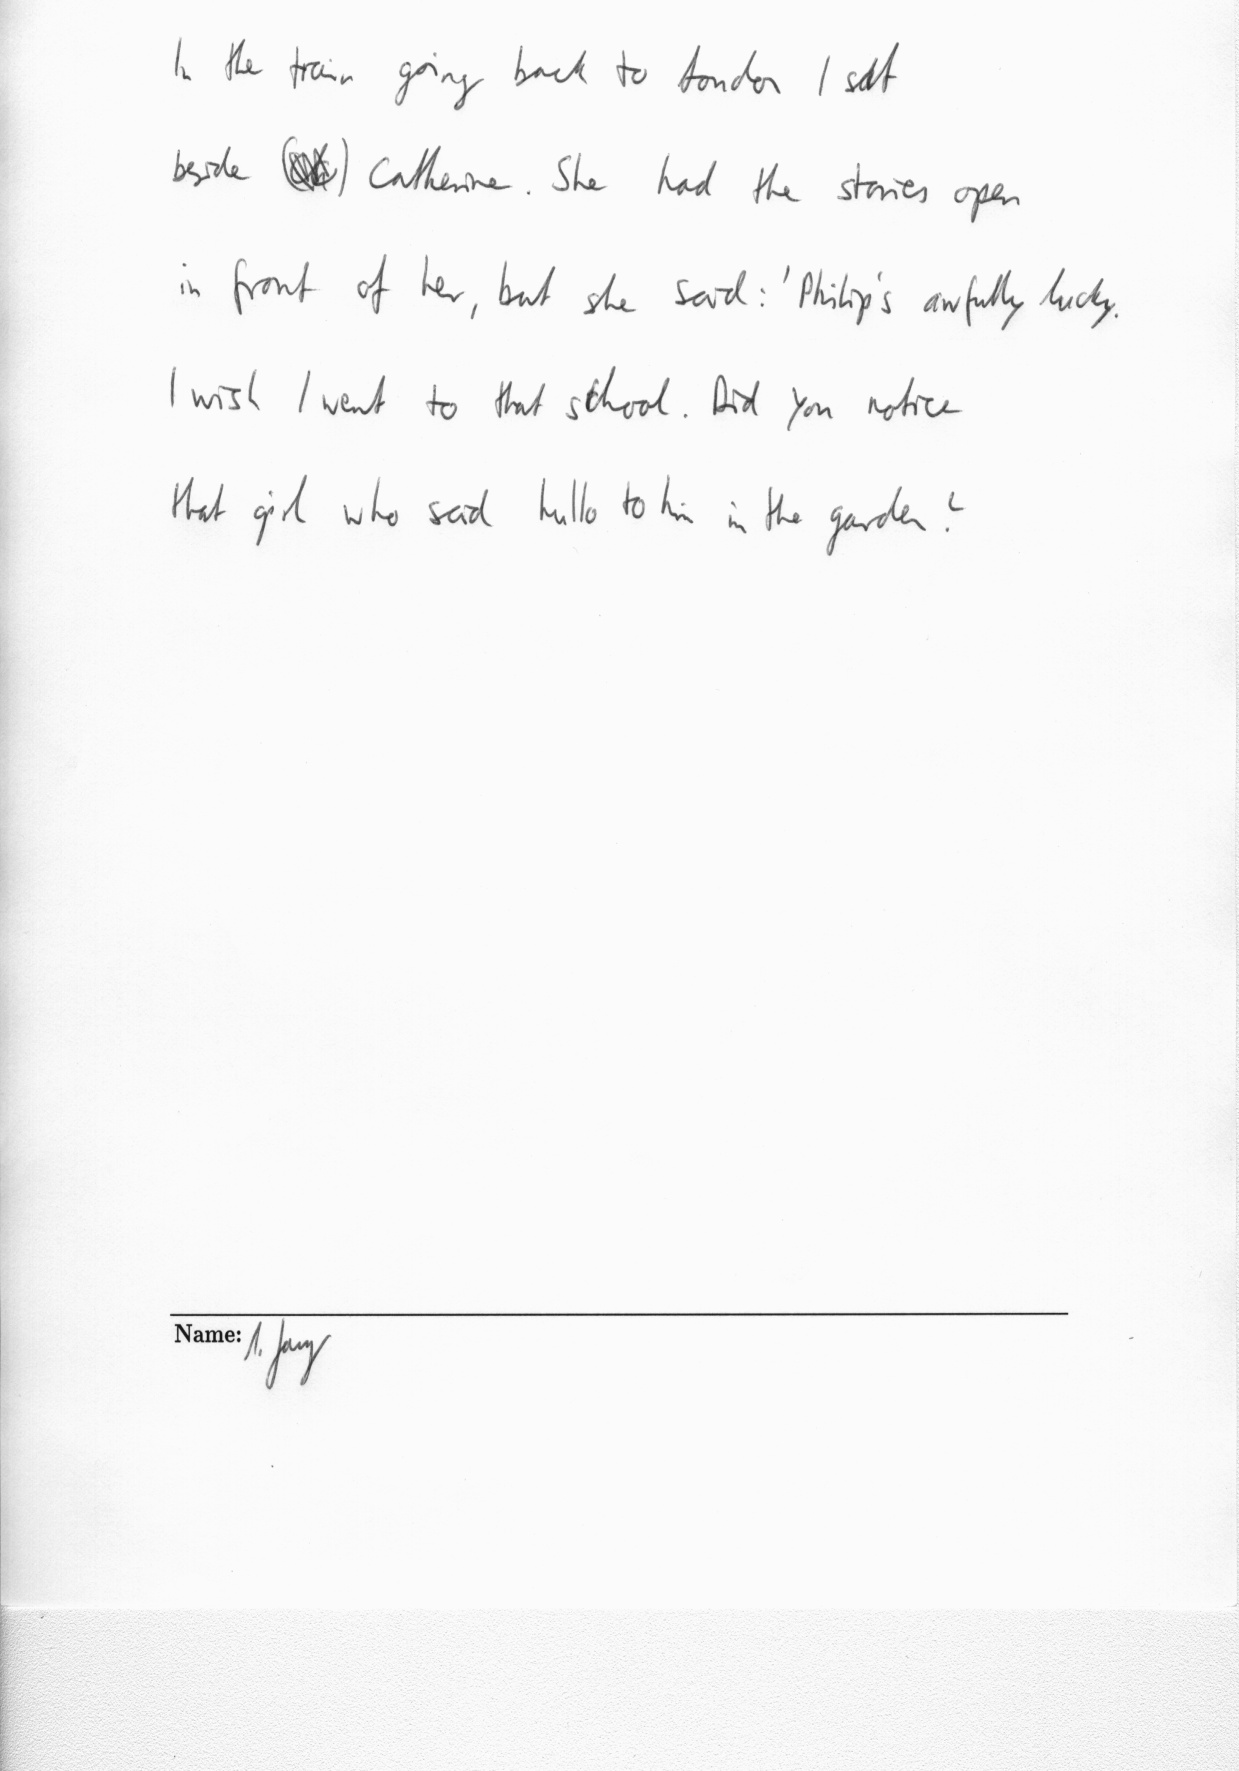 In the train going back to London I sat
beside () Catherine. She had the stories open
in front of her, but she said: 'Philip's awfully lucky.
I wish I went to that school. Did you notice
that girl who said hullo to him in the garden?
Name: